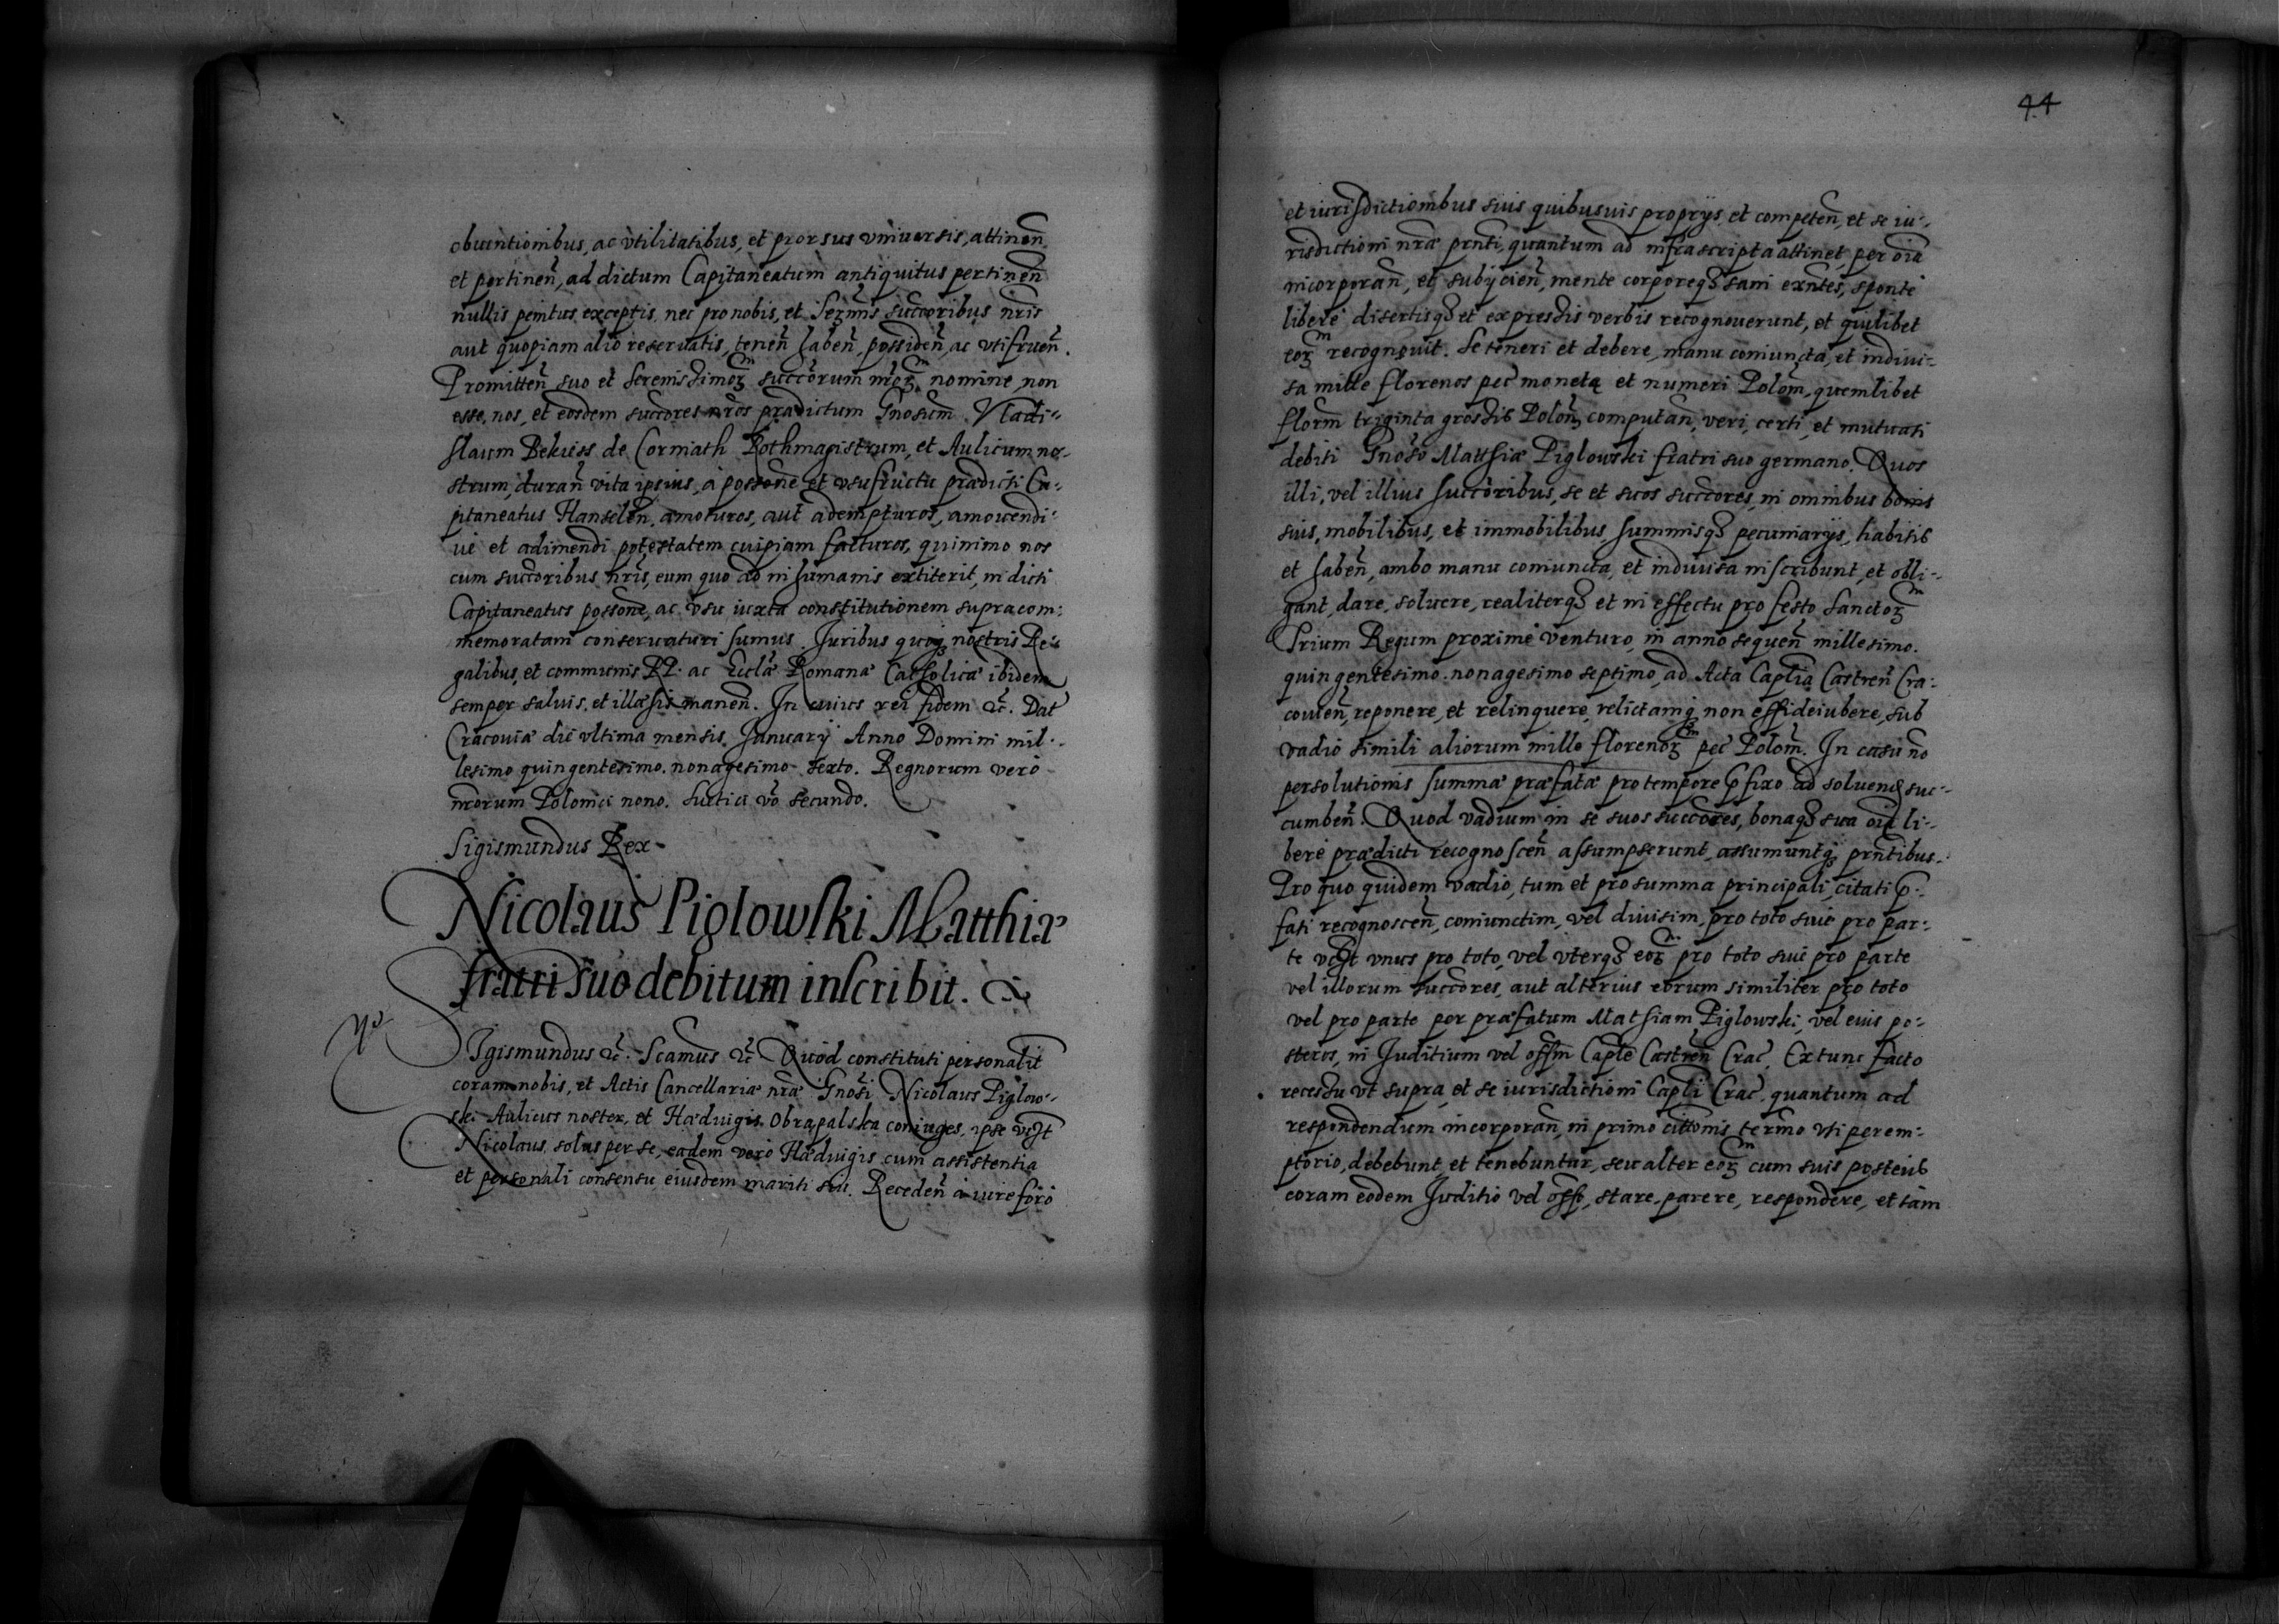 obuentionibus, ac vtilitatibus, et prorsus vniuersis, attinen̄
et pertinen̄, ad dictum Capitaneatum antiquitus pertinen̄
nullis penitus exceptis, nec pro nobis, et Serm̄is succoribus nr̄is
aut quopiam alio reseruatis, tenen̄ haben̄, possiden̄, ac vtifruen̄.
Promitten̄ suo et Serenissimoꝝ succorum nr̄oꝝ nomine, non
esse, nos, et eosdem succores nr̄os prædictum Gnosum Vladi-
slaum Bekiess de Corniath Rothmagistrum, et Aulicum no-
strum, duran̄ vita ipsius, a possone et vsufructu prædicti Ca-
ptaneatus amoturos, aut adempturos, amouendi-
ue et adimendi potestatem cuipiam facturos, quinimo nos
cum succoribus nr̄is, eum quo ad in humanis extiterit, in dicti
Capitaneatus possone, ac vsu iuxta constitutionem supracom-
memoratam conseruaturi sumus. Juribus quoqꝫ nostris Re-
galibus, et communis RP. ac Eccl̄æ Romanæ Catholicæ ibidem
semper saluis, et illæsis manen̄. In cuius rei fidem &c̄. Dat
Cracouiæ die vltima mensis January Anno Domini mil-
lesimo quingentesimo nonagesimo sexto. Regnorum vero
nr̄orum Poloniæ nono. Suetiæ vo secundo.
Sigismundus Rex
Nicolaus Piglowski Matthiæ
fratri suo debitum inscribit.
SIgismundus &c̄. Scamus &c̄ Quod constituti personalit
coram nobis, et Actis Cancellariæ nr̄æ Gnosi Nicolaus Piglow-
ski Aulicus noster, et Hæduigis Obrapalska coniuges, ipse vclt
Nicolaus solus per se, eadem vero Hæduigis cum assistentia
et personali consensu eiusdem mariti sui. Receden̄ a iure foro
44
et iurisdictionibus suis quibusuis proprys et competen̄, et se iu-
risdictioni nr̄æ prn̄ti, quantum ad infrascripta attinet, per oīa
incorporan̄, et subycien̄, mente corporeqꝫ sani exn̄tes, sponte
libere disertisqꝫ et expressis verbis recognouerunt, et quilibet
eoꝝ recognouit. Se teneri et debere, manu coniuncta, et indiui-
sa mille florenos pec̄ monetæ et numeri Polon̄, quemlibet
florm̄ triginta grossis Polon̄ computan̄, veri, certi, et mutuati
debiti Gnoso Matthiæ Piglowski fratri suo germano. Quos
illi, vel illius succoribus, se et suos succores, in omnibus bonis
suis, mobilibus, et immobilibus, summisqꝫ pecuniarys, habitis
et haben̄, ambo manu coniuncta, et indiuisa inscribunt, et obli-
gant, dare, soluere, realiterqꝫ et in effectu pro festo Sanctoꝝ
Trium Regum proxime venturo, in anno sequen̄ millesimo
quingentesimo nonagesimo septimo, ad Acta Caplia Castren̄ Cra-
couien̄, reponere, et relinquere, relictamqꝫ non effideiubere, sub
vadio simili aliorum mille florenoꝝ pec̄ Polon̄. In casu no
persolutionis summæ præfatæ pro tempore p̄fixo ad soluend suc-
cumben̄. Quod vadium in se suos succores, bonaqꝫ sua oīa li-
bere prædicti recognoscen̄ assumpserunt, assumuntqꝫ prn̄tibus.
Pro quo quidem vadio, tum et pro summa principali, citati p̄-
fati recognoscen̄, coniunctim, vel diuisim, pro toto siue pro par-
te vclt vnus pro toto, vel vterqꝫ eoꝝ pro toto siue pro parte
vel illorum succores, aut alterius eorum similiter pro toto
vel pro parte per præfatum Mathiam Piglowski, vel eius po-
steros, in Juditium vel off̄m Caple Castren̄ Crac̄. Extunc facto
recessu vt supra, et se iurisdictioni Capli Crac̄. quantum ad
respondendum incorporan̄, in primo citt̄onis termo vti perem-
ptorio, debebunt, et tenebuntur, seu alter eoꝝ cum suis posteris
coram eodem Juditio vel off̄o, stare, parere, respondere, et tam